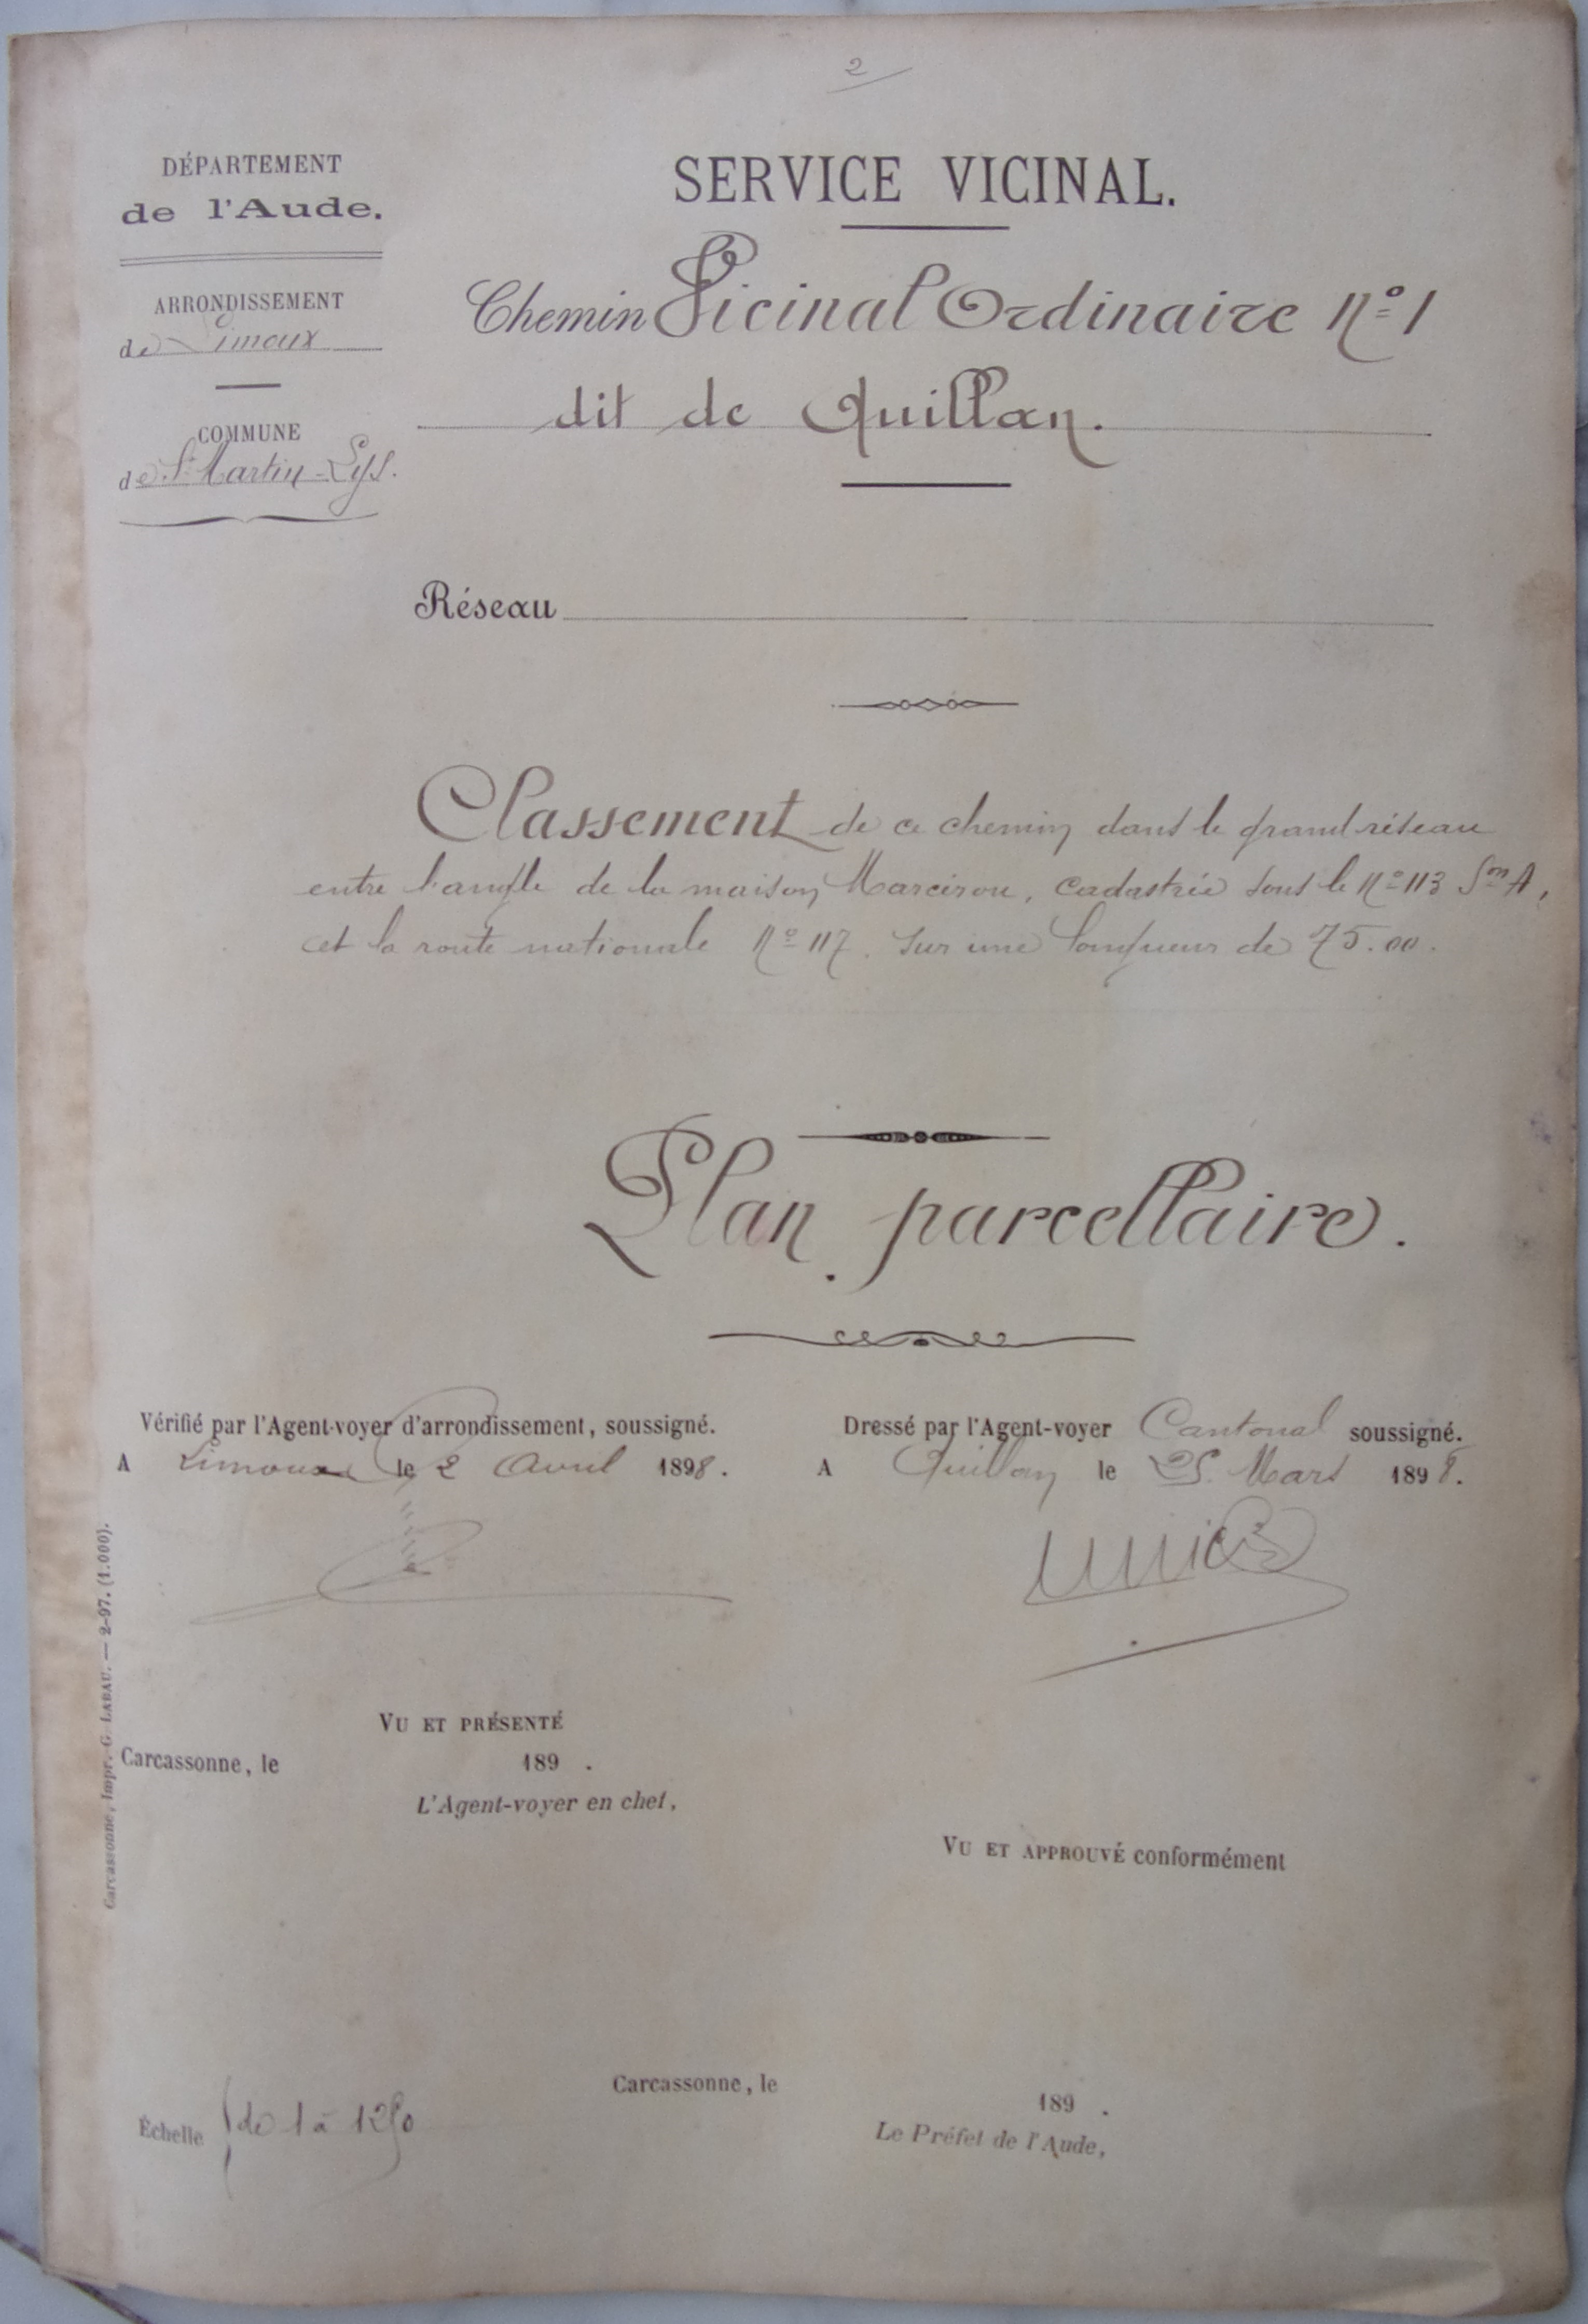 2
DÉPARTEMENT
de l'Aude.
ARRONDISSEMENT
de Limoux
COMMUNE
de St Martin-Lys.
SERVICE VICINAL.
Chemin Vicinal Ordinaire Nº 1
dit de Quillan.
Réseau
Classement de ce chemin dans le grand réseau
entre l'angle de la maison Marcirou, cadastrée sous le Nº 113 Son A,
et la route nationale Nº 117. sur une longueur de 75.00.
Plan parcellaire.
Vérifié par l'Agent-voyer d'arrondissement, soussigné.
A Limoux le 2 Avril 1898.
Dressé par l'Agent-voyer Cantonal soussigné.
A Quillan le 25 Mars 1898.
VU ET PRÉSENTÉ
Carcassonne, le 189 .
L'Agent-voyer en chef,
VU ET APPROUVÉ conformément
Carcassonne, le 189 .
Le Préfet de l'Aude,
Échelle de 1 à 1250
Carcassonne, Impr. G. LABAU. — 2-97. (1.000).